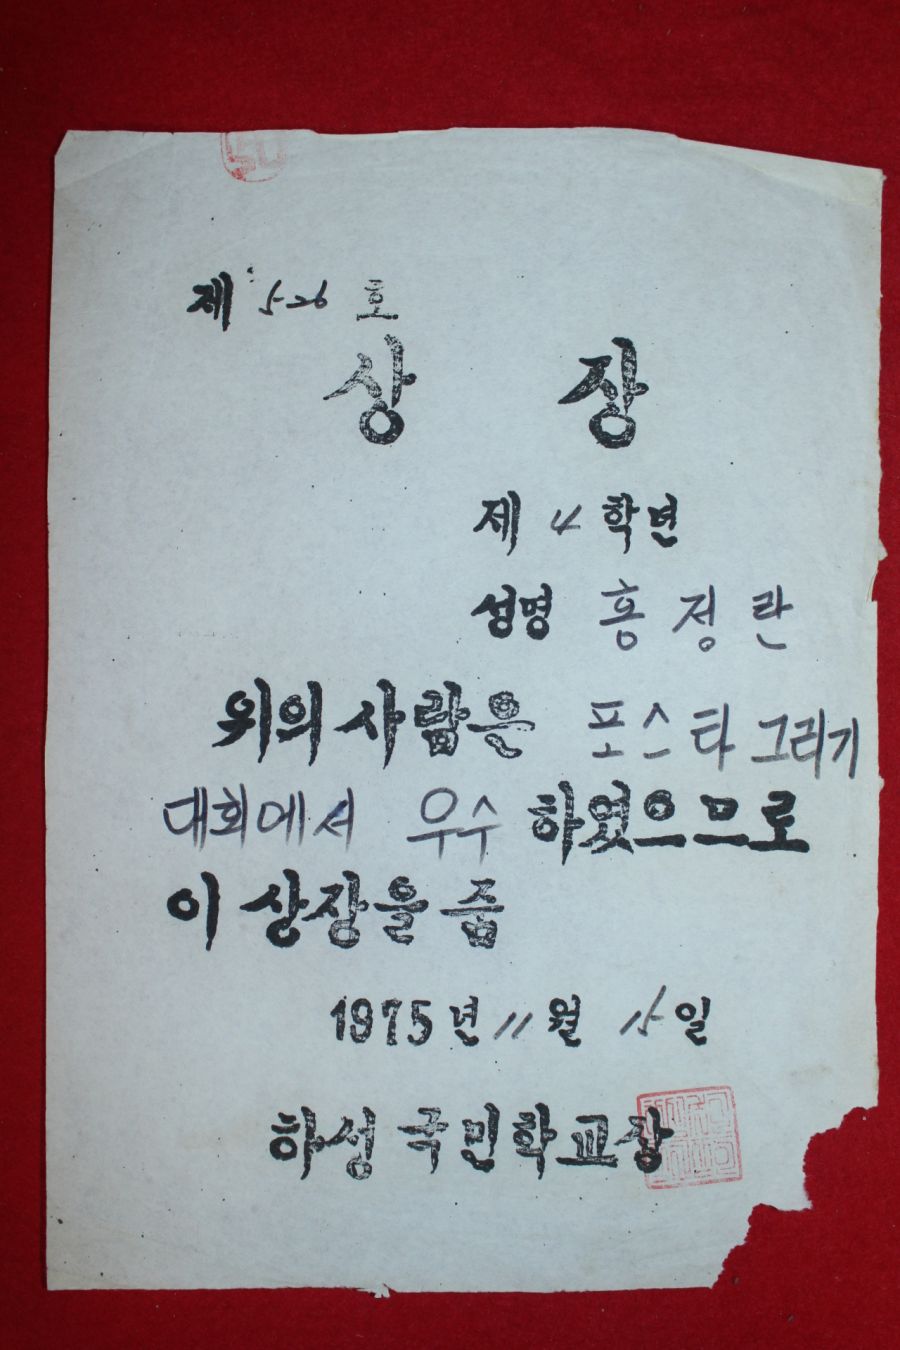 제 526 호
상 장
제 4 학년
성명 홍정란
위의 사람은 포스타 그리기
대회에서 우수 하였으므로
이 상장을 줌
1975년 11월 15일
하성 국민학교장